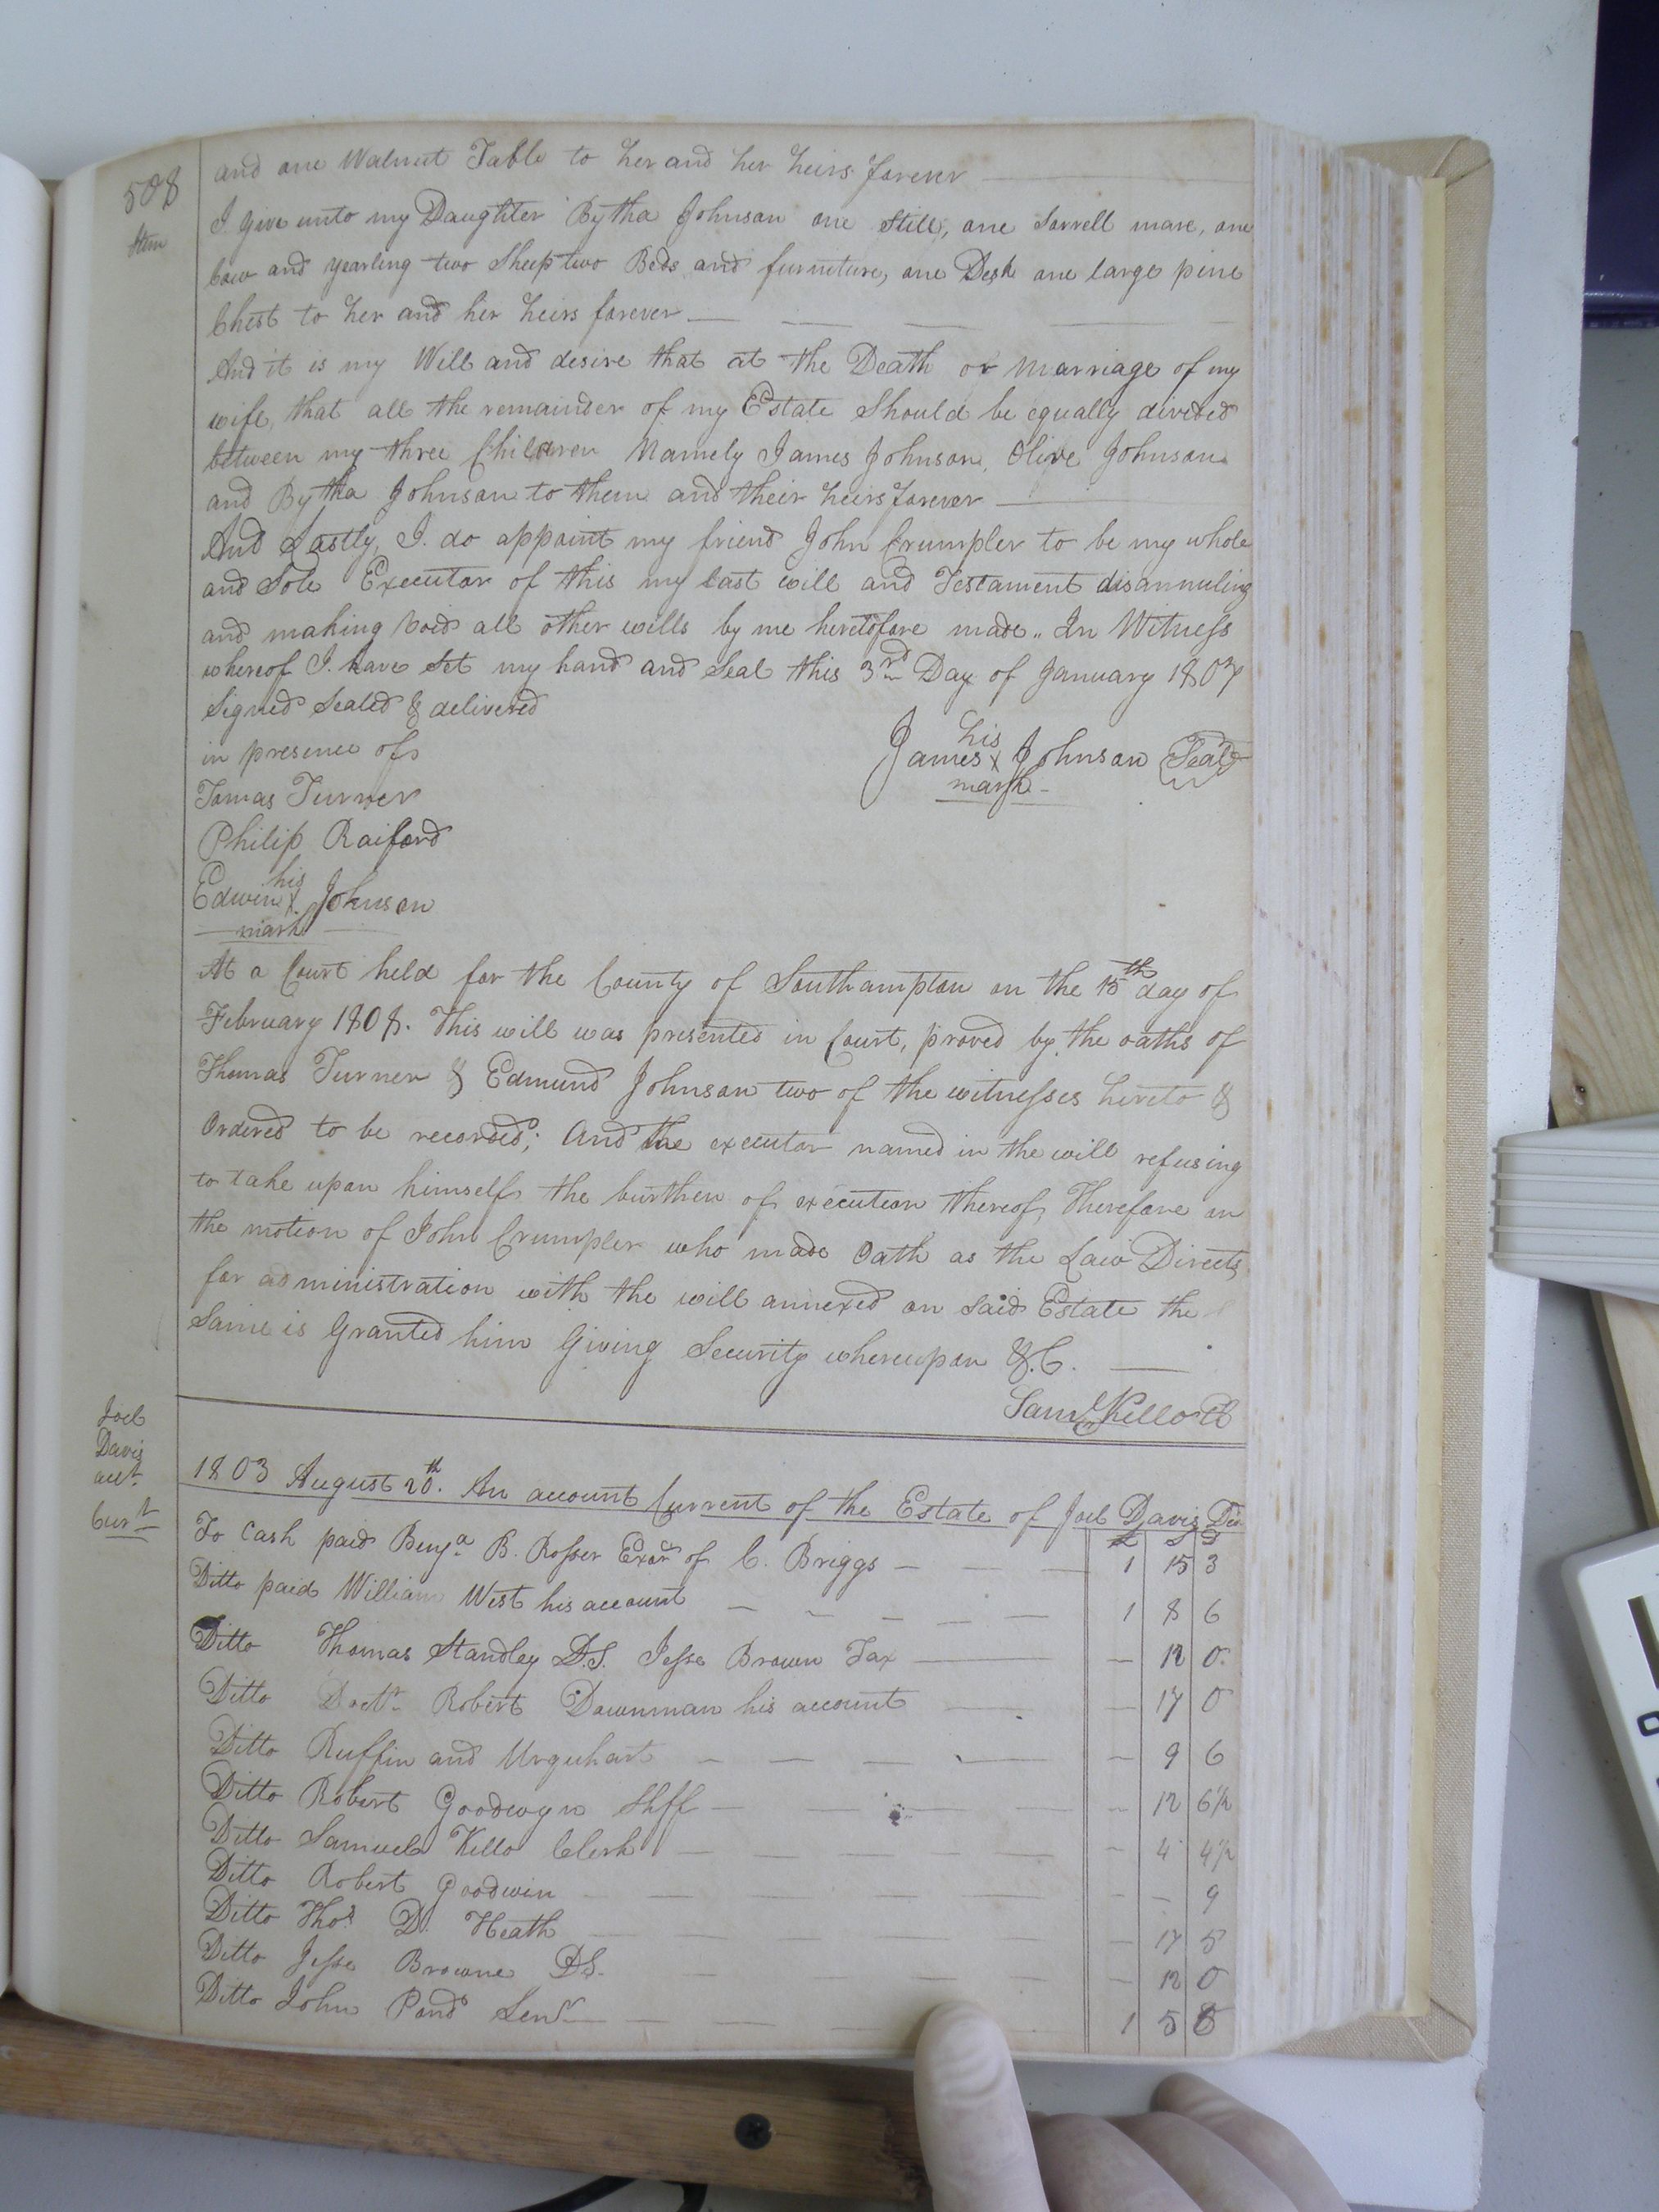 508
and one Walnut Table to her and her heirs forever
Item
I give unto my Daughter Bytha Johnson one Still, one Sorrell mare, one
Cow and yearling two Sheep two Beds and furniture, one Desk one large pine
Chest to her and her heirs forever
And it is my Will and desire that at the Death or Marriage of my
wife, that all the remainder of my Estate Should be equally divided
between my three Children Namely James Johnson, Olive Johnson
and Bytha Johnson to them and their heirs forever
And Lastly, I do appoint my friend John Crumpler to be my whole
and Sole Executor of this my last will and Testament disannuling
and making Void all other wills by me heretofore made.. In Witness
whereof I have Set my hand and Seal this 3rd Day of January 1807
Signed Sealed & delivered
in presence of
his
James x Johnson Seal
mark
Tomas Turner
Philip Raiford
his
Edwin x Johnson
mark
At a Court held for the County of Southampton on the 15th day of
February 1808. This will was presented in Court, proved by the oaths of
Thomas Turner & Edmund Johnson two of the witnesses hereto &
Ordered to be recorded; And the executor named in the will refusing
to take upon himself the burthen of execution thereof, Therefore on
the motion of John Crumpler who made Oath as the Law Directs
for administration with the will annexed on Said Estate the
Same is Granted him Giving Security whereupon &.C.
Saml Kello C
Joel
Davis
acct.
Curt
1803 August 20th. An account Current of the Estate of Joel Davis Decd
£ S D
To Cash paid Benja. B. Rosser Exor of C. Briggs 1 15 3
Ditto paid William West his account 1 8 6
Ditto Thomas Standley D.S. Jesse Brown Tax 12 0
Ditto Doctr. Robert Downman his account 17 0
Ditto Ruffin and Urquhart 9 6
Ditto Robert Goodwyn Shff 12 6½
Ditto Samuel Kello Clerk 4 4½
Ditto Robert Goodwin 9
Ditto Thos D. Heath 17 5
Ditto Jesse Browne DS. 12 0
Ditto John Pond Senr 1 5